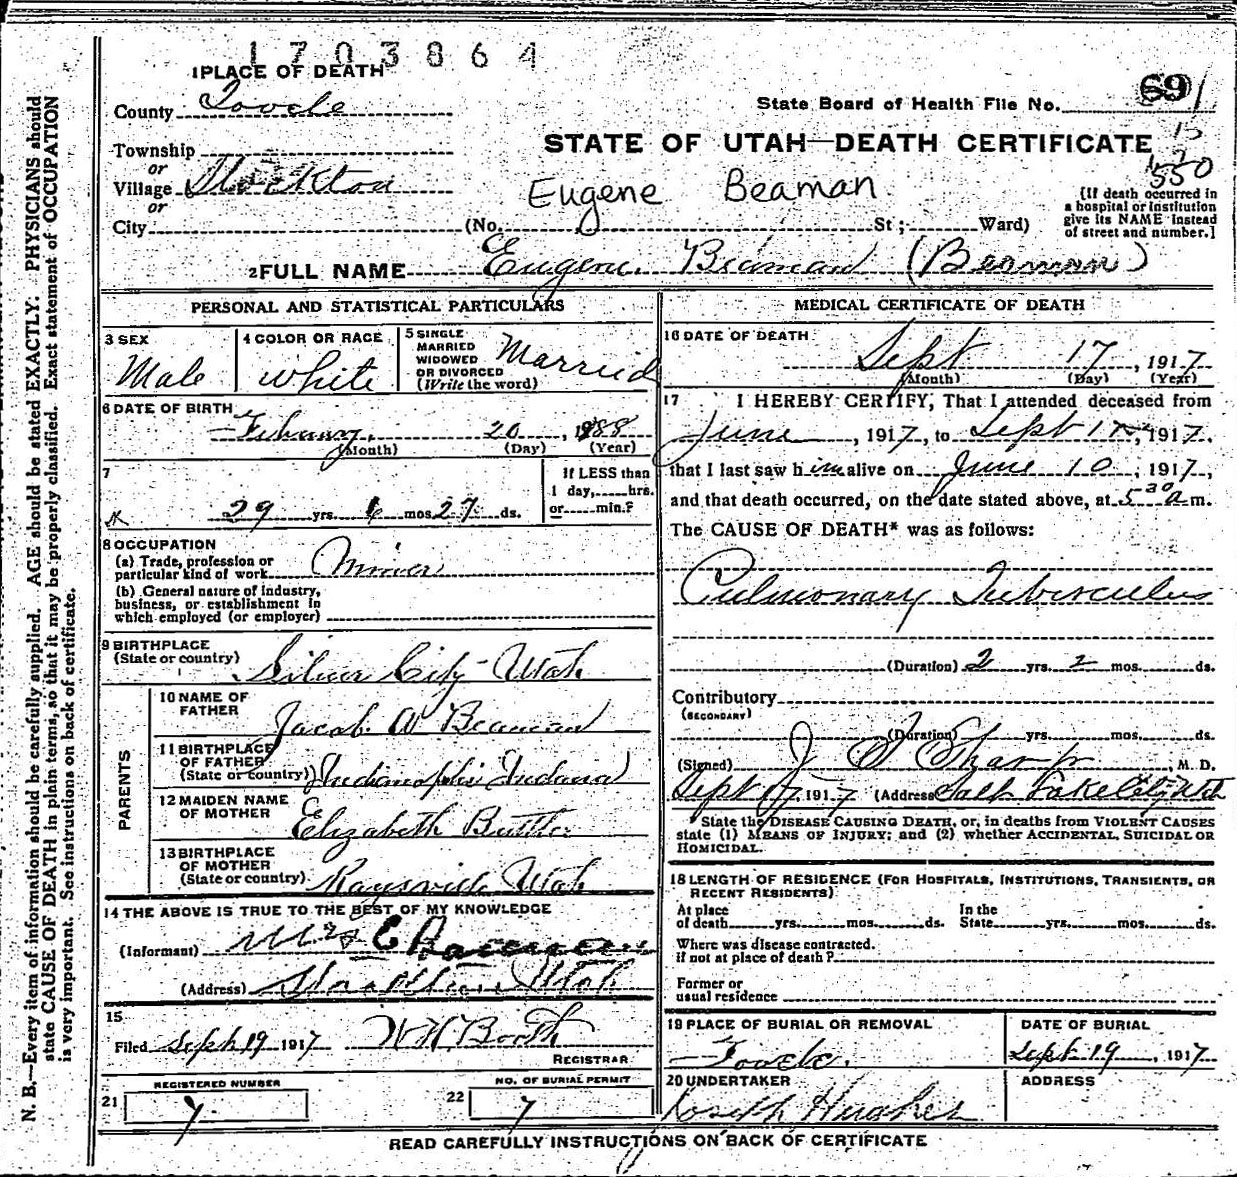 1703864
1 PLACE OF DEATH
County Tooele
State Board of Health File No. 69
STATE OF UTAH—DEATH CERTIFICATE
Township
or
Village Stockton
or
City
550
Eugene Beaman
(No. St; Ward)
[If death occurred in
a hospital or institution
give its NAME instead
of street and number.]
2 FULL NAME Eugene Beaman (Beaman)
PERSONAL AND STATISTICAL PARTICULARS
3 SEX
Male
4 COLOR OR RACE
White
5 SINGLE
MARRIED
WIDOWED
OR DIVORCED
(Write the word)
Married
6 DATE OF BIRTH
February 20, 1888
(Month) (Day) (Year)
7
29 yrs. 6 mos. 27 ds.
If LESS than
1 day,.....hrs.
or.....min.?
8 OCCUPATION
(a) Trade, profession or
particular kind of work Miner
(b) General nature of industry,
business, or establishment in
which employed (or employer)
9 BIRTHPLACE
(State or country) Silver City Utah
PARENTS
10 NAME OF
FATHER Jacob W Beaman
11 BIRTHPLACE
OF FATHER
(State or country) Indianapolis Indiana
12 MAIDEN NAME
OF MOTHER Elizabeth Buttler
13 BIRTHPLACE
OF MOTHER
(State or country) Kaysville Utah
14 THE ABOVE IS TRUE TO THE BEST OF MY KNOWLEDGE
(Informant) Mrs E Beaman
(Address) Stockton Utah
15
Filed Sept 19 1917 W H Booth
REGISTRAR
REGISTERED NUMBER
21 7
NO. OF BURIAL PERMIT
22 7
MEDICAL CERTIFICATE OF DEATH
16 DATE OF DEATH
Sept 17, 1917
(Month) (Day) (Year)
17 I HEREBY CERTIFY, That I attended deceased from
June, 1917, to Sept 17, 1917.
that I last saw him alive on June 10, 1917,
and that death occurred, on the date stated above, at 5 30 a m.
The CAUSE OF DEATH* was as follows:
Pulmonary Tuberculus
(Duration) 2 yrs. 2 mos. ds.
Contributory
(SECONDARY)
(Duration) yrs. mos. ds.
(Signed) J. Sharp, M. D.
Sept 17, 1917 (Address) Salt Lake City Utah
*State the DISEASE CAUSING DEATH, or, in deaths from VIOLENT CAUSES
state (1) MEANS OF INJURY; and (2) whether ACCIDENTAL, SUICIDAL OR
HOMICIDAL.
18 LENGTH OF RESIDENCE (FOR HOSPITALS, INSTITUTIONS, TRANSIENTS, OR
RECENT RESIDENTS)
At place
of death yrs. mos. ds.
In the
State yrs. mos. ds.
Where was disease contracted.
if not at place of death?
Former or
usual residence
19 PLACE OF BURIAL OR REMOVAL
Tooele.
DATE OF BURIAL
Sept 19, 1917
20 UNDERTAKER
Joseph Hughes
ADDRESS
READ CAREFULLY INSTRUCTIONS ON BACK OF CERTIFICATE
N. B.—Every item of information should be carefully supplied. AGE should be stated EXACTLY. PHYSICIANS should
state CAUSE OF DEATH in plain terms, so that it may be properly classified. Exact statement of OCCUPATION
is very important. See instructions on back of certificate.